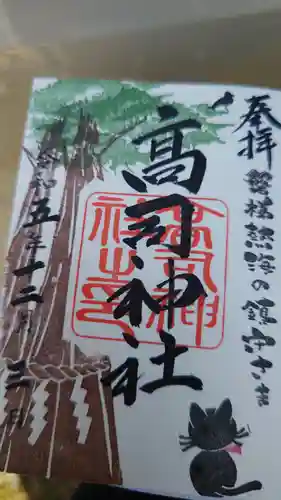 奉拝
磐梯熱海の鎮守さま
高司神社
高司神
社之印
令和五年十二月三日